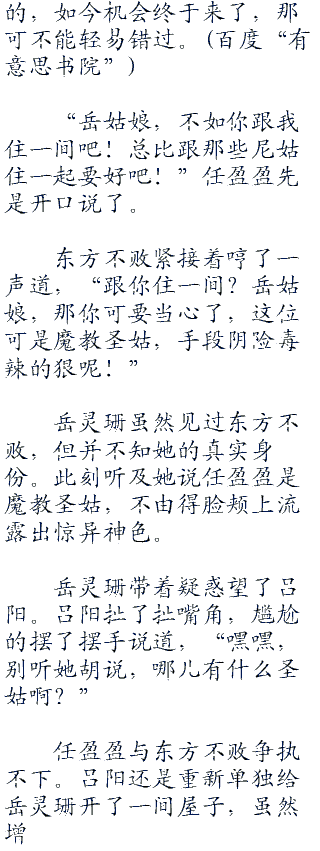 的，如今机会终于来了，那
可不能轻易错过。(百度“有
意思书院”)
“岳姑娘，不如你跟我
住一间吧！总比跟那些尼姑
住一起要好吧！”任盈盈先
是开口说了。
东方不败紧接着哼了一
声道，“跟你住一间？岳姑
娘，那你可要当心了，这位
可是魔教圣姑，手段阴险毒
辣的狠呢！”
岳灵珊虽然见过东方不
败，但并不知她的真实身
份。此刻听及她说任盈盈是
魔教圣姑，不由得脸颊上流
露出惊异神色。
岳灵珊带着疑惑望了吕
阳。吕阳扯了扯嘴角，尴尬
的摆了摆手说道，“嘿嘿，
别听她胡说，哪儿有什么圣
姑啊？”
任盈盈与东方不败争执
不下。吕阳还是重新单独给
岳灵珊开了一间屋子，虽然
增